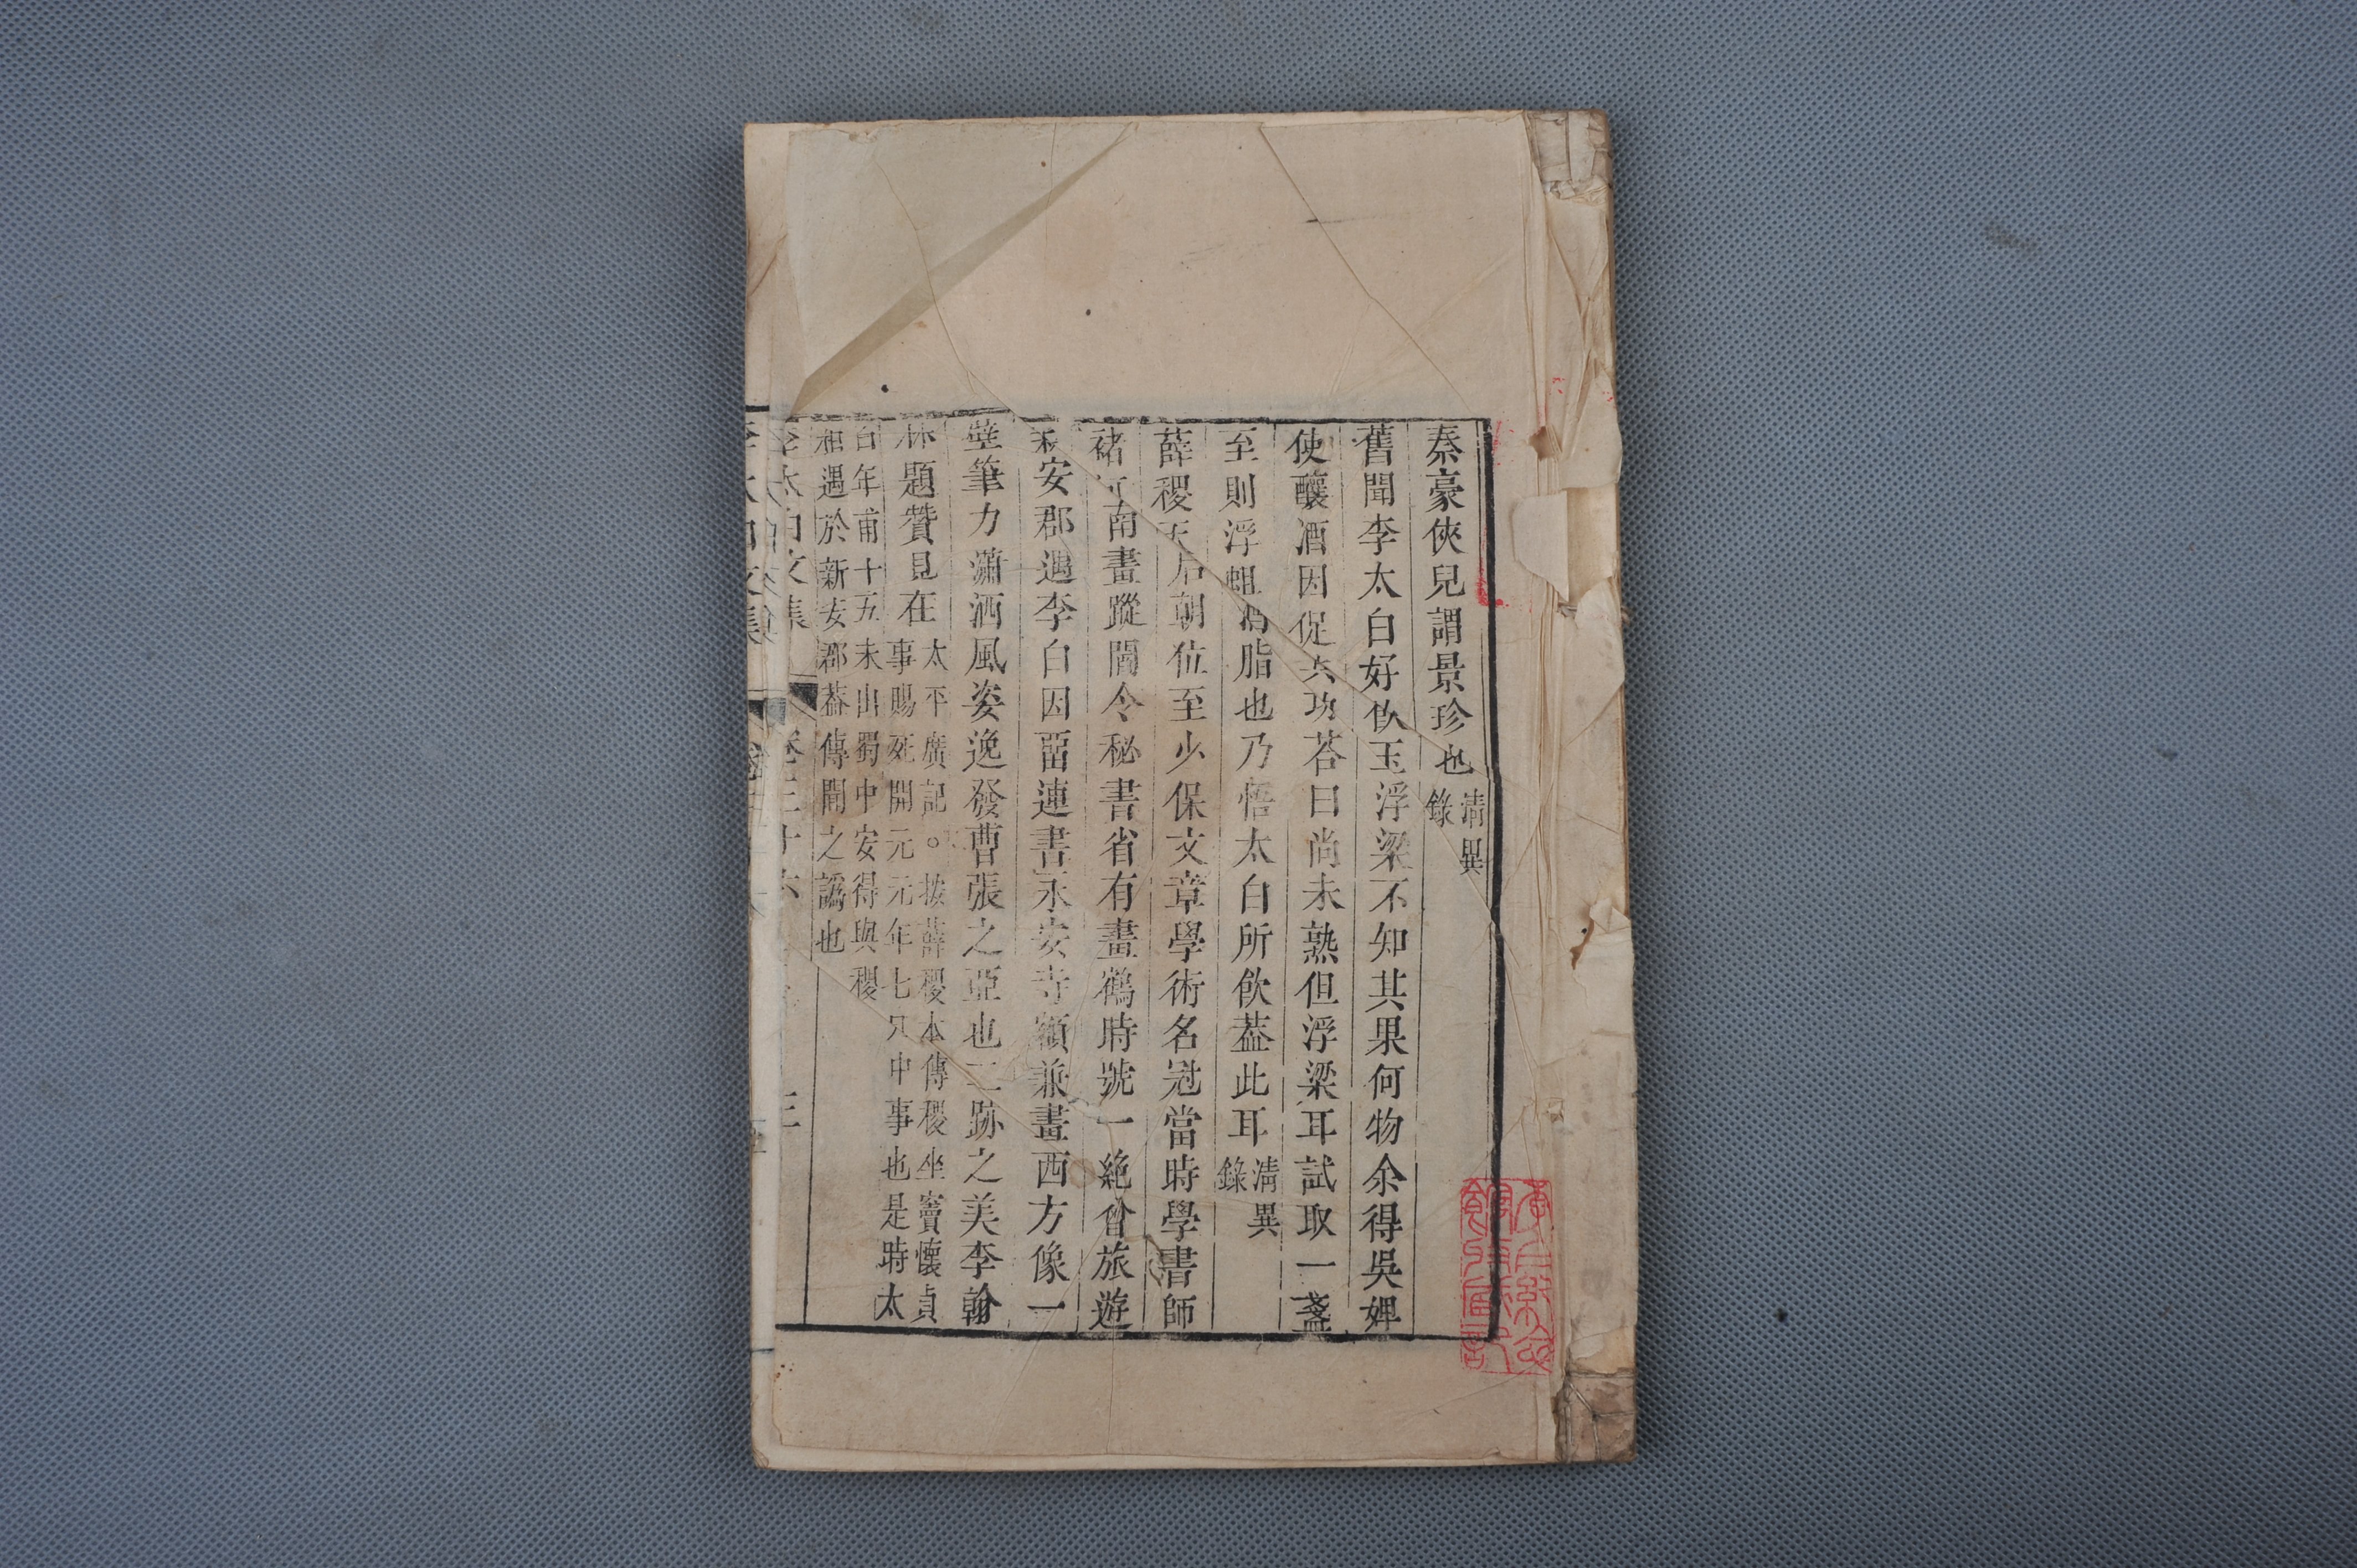 秦豪俠兒謂景珍也清異錄
舊聞李太白好飲玉浮梁不知其果何物余得吳婢
使釀酒因促其功荅曰尚未熟但浮梁耳試取一盞
至則浮蛆酒脂也乃悟太白所飲葢此耳清異錄
薛稷天后朝位至少保文章學術名冠當時學書師
褚河南畫蹤閻令秘書省有畫鶴時號一絕曾旅遊
新安郡遇李白因畱連書永安寺額兼畫西方像一
壁筆力瀟洒風姿逸發曹張之亞也二跡之美李翰
林題贊見在太平廣記。按薛稷本傳稷坐竇懷貞
事賜死開元元年七月中事也是時太
白年甫十五未出蜀中安得與稷
相遇於新安郡葢傳聞之譌也
李太白文集 卷三十六 三